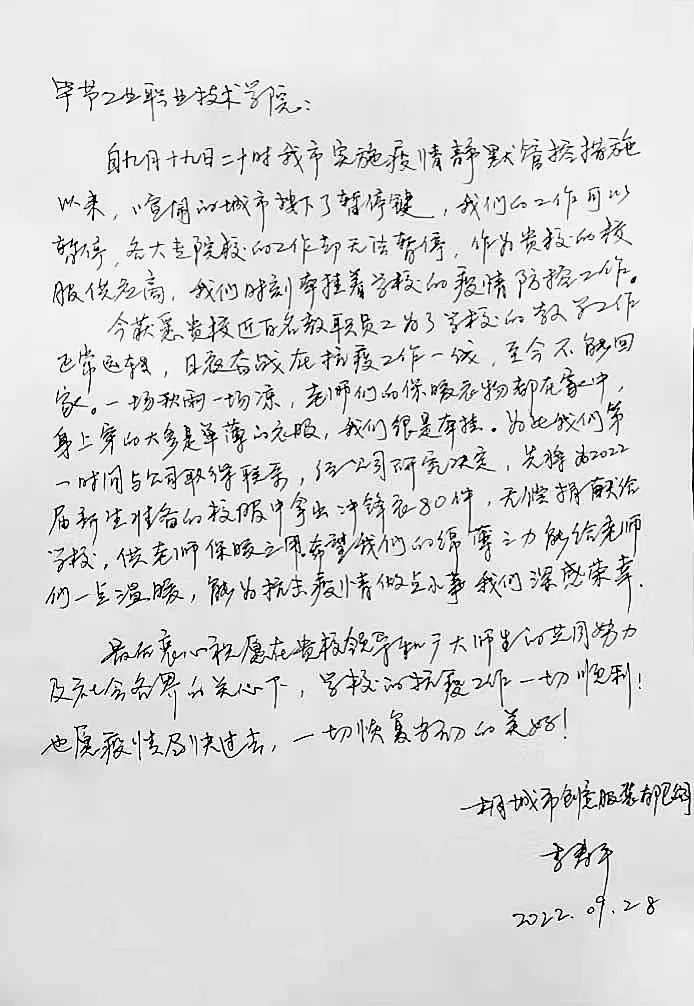 毕节工业职业技术学院：
自九月十九日二十时我市实施疫情静默管控措施
以来，喧闹的城市按下了暂停键，我们的工作可以
暂停，各大专院校的工作却无法暂停，作为贵校的校
服供应商，我们时刻牵挂着学校的疫情防控工作。
今获悉贵校近百名教职员工为了学校的教学工作
正常运转，日夜奋战在抗疫工作一线，至今不能回
家。一场秋雨一场凉，老师们的保暖衣物都在家中，
身上穿的大多是单薄的衣服，我们很是牵挂。为此我们第
一时间与公司取得联系，经公司研究决定，先将为2022
届新生准备的校服中拿出冲锋衣80件，无偿捐献给
学校，供老师保暖之用。希望我们的绵薄之力能给老师
们一点温暖，能为抗击疫情做点小事我们深感荣幸.
最后衷心祝愿在贵校领导和广大师生的共同努力
及社会各界的关心下，学校的抗疫工作一切顺利！
也愿疫情尽快过去，一切恢复如初的美好！
桐城市创意服装有限公司
李
2022.09.28